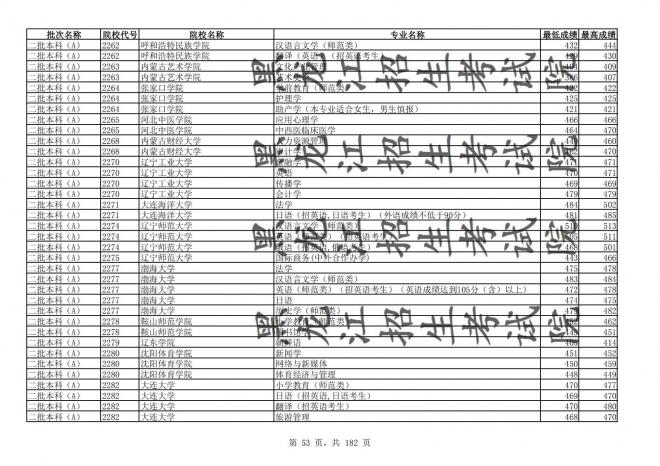 批次名称 院校代号 院校名称 专业名称 最低成绩 最高成绩
二批本科（A） 2262 呼和浩特民族学院 汉语言文学（师范类） 432 444
二批本科（A） 2262 呼和浩特民族学院 翻译（英语）（招英语考生） 430
二批本科（A） 2263 内蒙古艺术学院 文化产业管理 409
二批本科（A） 2263 内蒙古艺术学院 407
二批本科（A） 2264 张家口学院 学前教育（师范类） 422
二批本科（A） 2264 张家口学院 护理学 425 425
二批本科（A） 2264 张家口学院 助产学（本专业适合女生，男生慎报） 421
二批本科（A） 2265 河北中医学院 应用心理学 466 466
二批本科（A） 2265 河北中医学院 中西医临床医学 464 470
二批本科（A） 2268 内蒙古财经大学 人力资源管理 460
二批本科（A） 2268 内蒙古财经大学 470
二批本科（A） 2270 辽宁工业大学 471
二批本科（A） 2270 辽宁工业大学 英语 471
二批本科（A） 2270 辽宁工业大学 传播学 469 469
二批本科（A） 2270 辽宁工业大学 会计学 479 479
二批本科（A） 2271 大连海洋大学 法学 484 502
二批本科（A） 2271 大连海洋大学 日语（招英语,日语考生）（外语成绩不低于90分） 481 485
二批本科（A） 2274 辽宁师范大学 汉语言文学（师范类） 513
二批本科（A） 2274 辽宁师范大学 511
二批本科（A） 2274 辽宁师范大学 501
二批本科（A） 2275 辽宁师范大学 国际商务(中外合作办学) 443 466
二批本科（A） 2277 渤海大学 法学 475 478
二批本科（A） 2277 渤海大学 汉语言文学（师范类） 483 484
二批本科（A） 2277 渤海大学 英语（师范类）（招英语考生）（英语成绩达到105分（含）以上） 472 478
二批本科（A） 2277 渤海大学 日语 474 475
二批本科（A） 2277 渤海大学 历史学（师范类） 482
二批本科（A） 2278 鞍山师范学院 462
二批本科（A） 2278 鞍山师范学院 451
二批本科（A） 2279 辽东学院 朝鲜语 414
二批本科（A） 2280 沈阳体育学院 新闻学 451 452
二批本科（A） 2280 沈阳体育学院 网络与新媒体 450 459
二批本科（A） 2280 沈阳体育学院 体育经济与管理 448 449
二批本科（A） 2282 大连大学 小学教育（师范类） 470 477
二批本科（A） 2282 大连大学 日语（招英语,日语考生） 469 470
二批本科（A） 2282 大连大学 翻译（招英语考生） 470 480
二批本科（A） 2282 大连大学 旅游管理 468 470
黑龙江招生考试院
黑龙江招生考试院
黑龙江招生考试院
黑龙江招生考试院
第 53 页，共 182 页